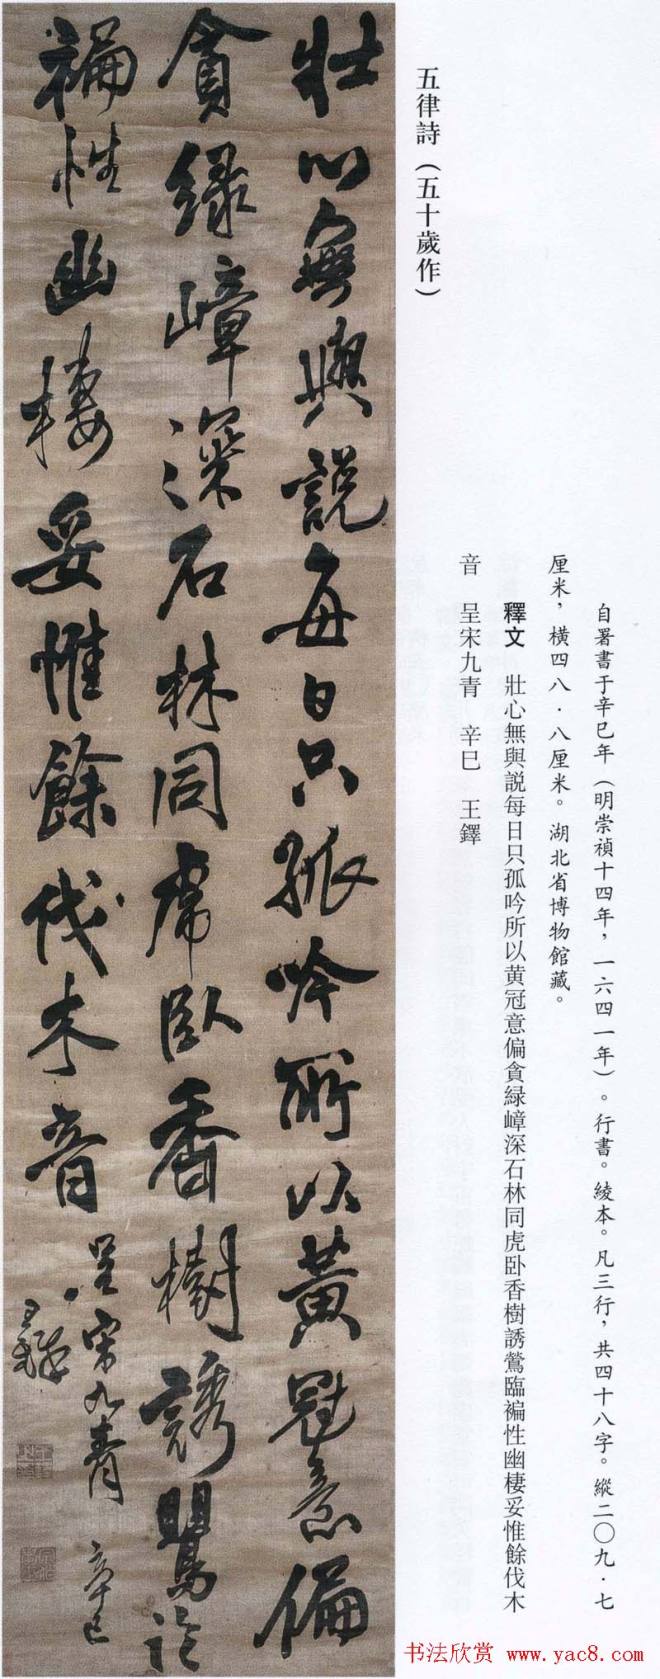 五律詩（五十歲作）
自署書于辛巳年（明崇禎十四年，一六四一年）。行書。綾本。凡三行，共四十八字。縱二〇九·七
厘米，橫四八·八厘米。湖北省博物館藏。
釋文　壯心無與説每日只孤吟所以黄冠意偏貪緑嶂深石林同虎卧香樹誘鶯臨褊性幽棲妥惟餘伐木
音　呈宋九青　辛巳　王鐸
壯心無與説每日只孤吟所以黄冠意偏
貪緑嶂深石林同虎臥香樹誘鶯臨
褊性幽棲妥惟餘伐木音
呈宋九青　辛巳
王鐸
书法欣赏 www.yac8.com